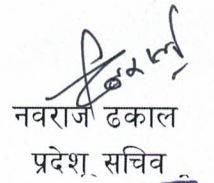 नवराज ढकाल
प्रदेश सचिव